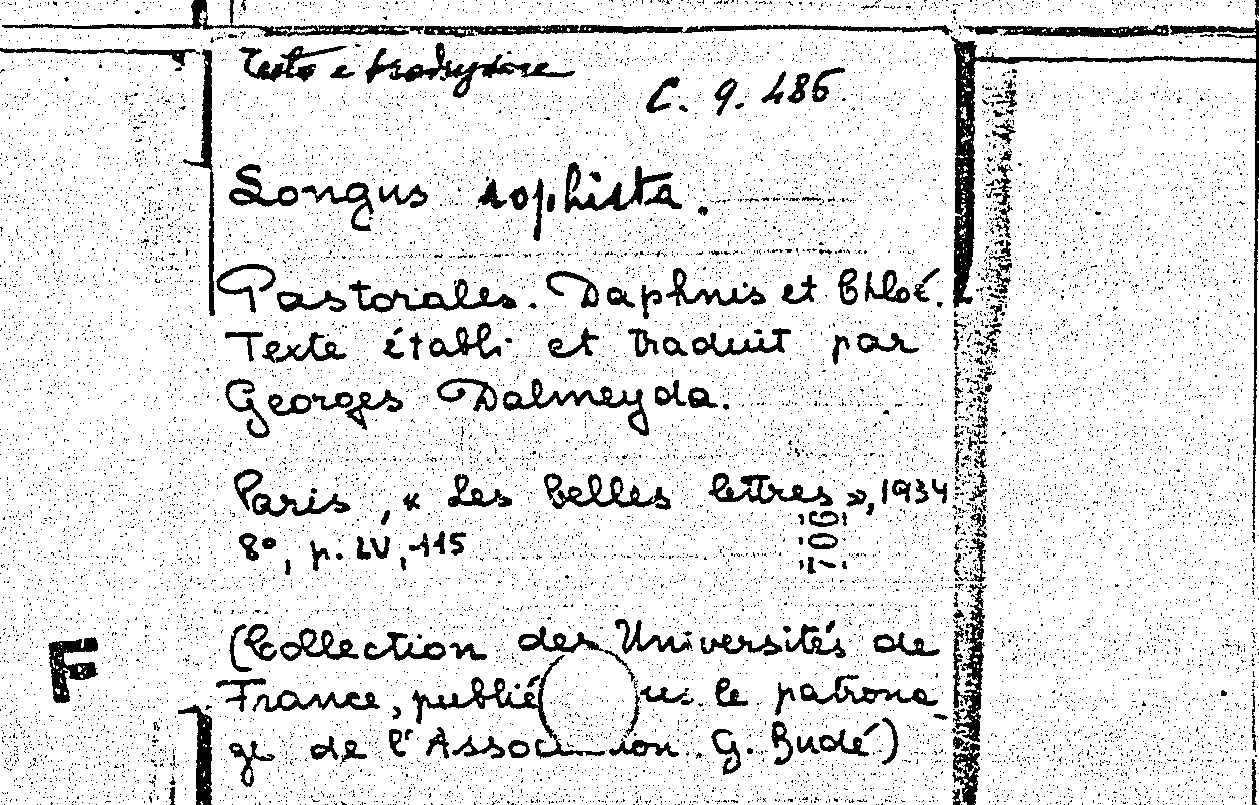 Testo e traduzione
C. 9. 486
Longus sophista.
Pastorales. Daphnis et Chloé.
Texte établi et traduit par
Georges Dalmeyda.
Paris, « Les belles lettres », 1934
8°, p. LV, -115
(Collection des Universités de
France, publié le patrona_
ge de l'Association G. Budé)
F